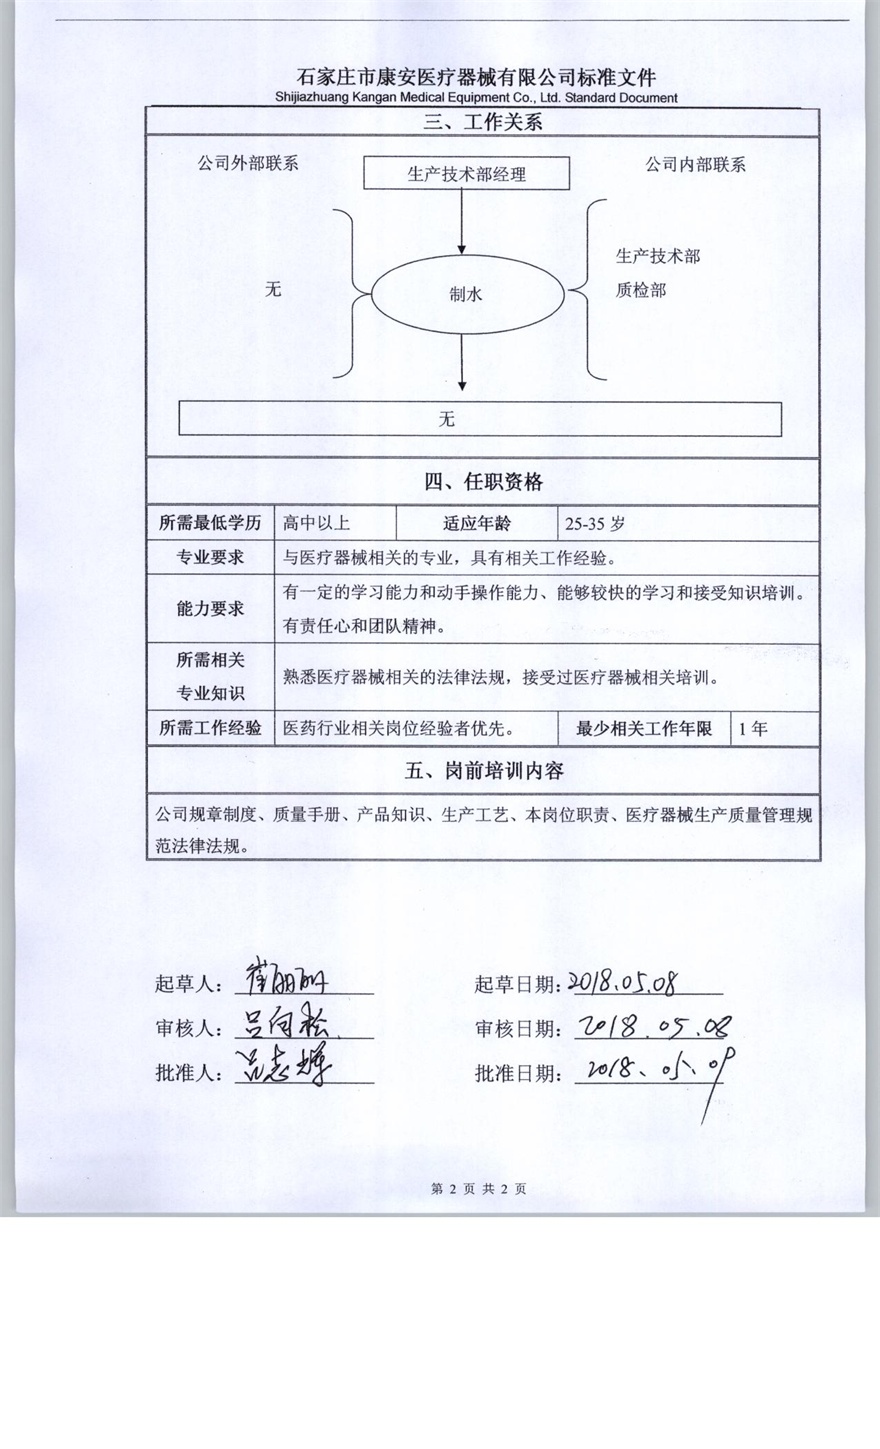 石家庄市康安医疗器械有限公司标准文件
Shijiazhuang Kangan Medical Equipment Co., Ltd. Standard Document
三、工作关系
公司外部联系
生产技术部经理
公司内部联系
无
制水
生产技术部
质检部
无
四、任职资格
所需最低学历 高中以上 适应年龄 25-35 岁
专业要求 与医疗器械相关的专业，具有相关工作经验。
能力要求
有一定的学习能力和动手操作能力、能够较快的学习和接受知识培训。
有责任心和团队精神。
所需相关
专业知识
熟悉医疗器械相关的法律法规，接受过医疗器械相关培训。
所需工作经验 医药行业相关岗位经验者优先。 最少相关工作年限 1 年
五、岗前培训内容
公司规章制度、质量手册、产品知识、生产工艺、本岗位职责、医疗器械生产质量管理规
范法律法规。
起草人： 起草日期：2018.05.08
审核人： 吕向松 审核日期： 2018.05.08
批准人： 吕志辉 批准日期： 2018、05、09
第 2 页 共 2 页